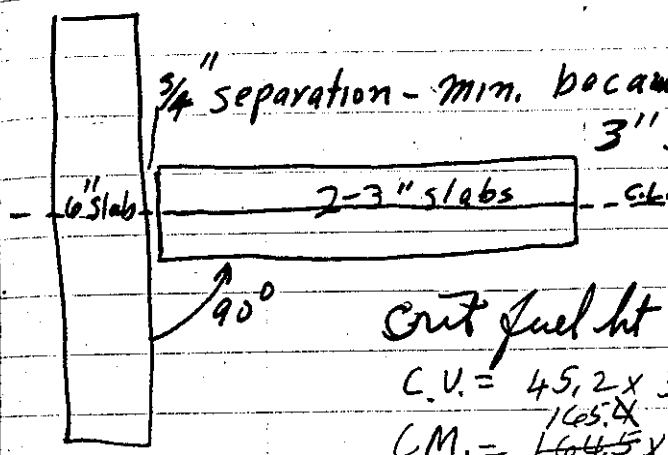 3/4" separation - min. because
3".
6" Slab
2-3" slabs
C.L.
90°
Crit fuel ht
C.V. = 45.2 x
165.4
C.M. = 164.5 x